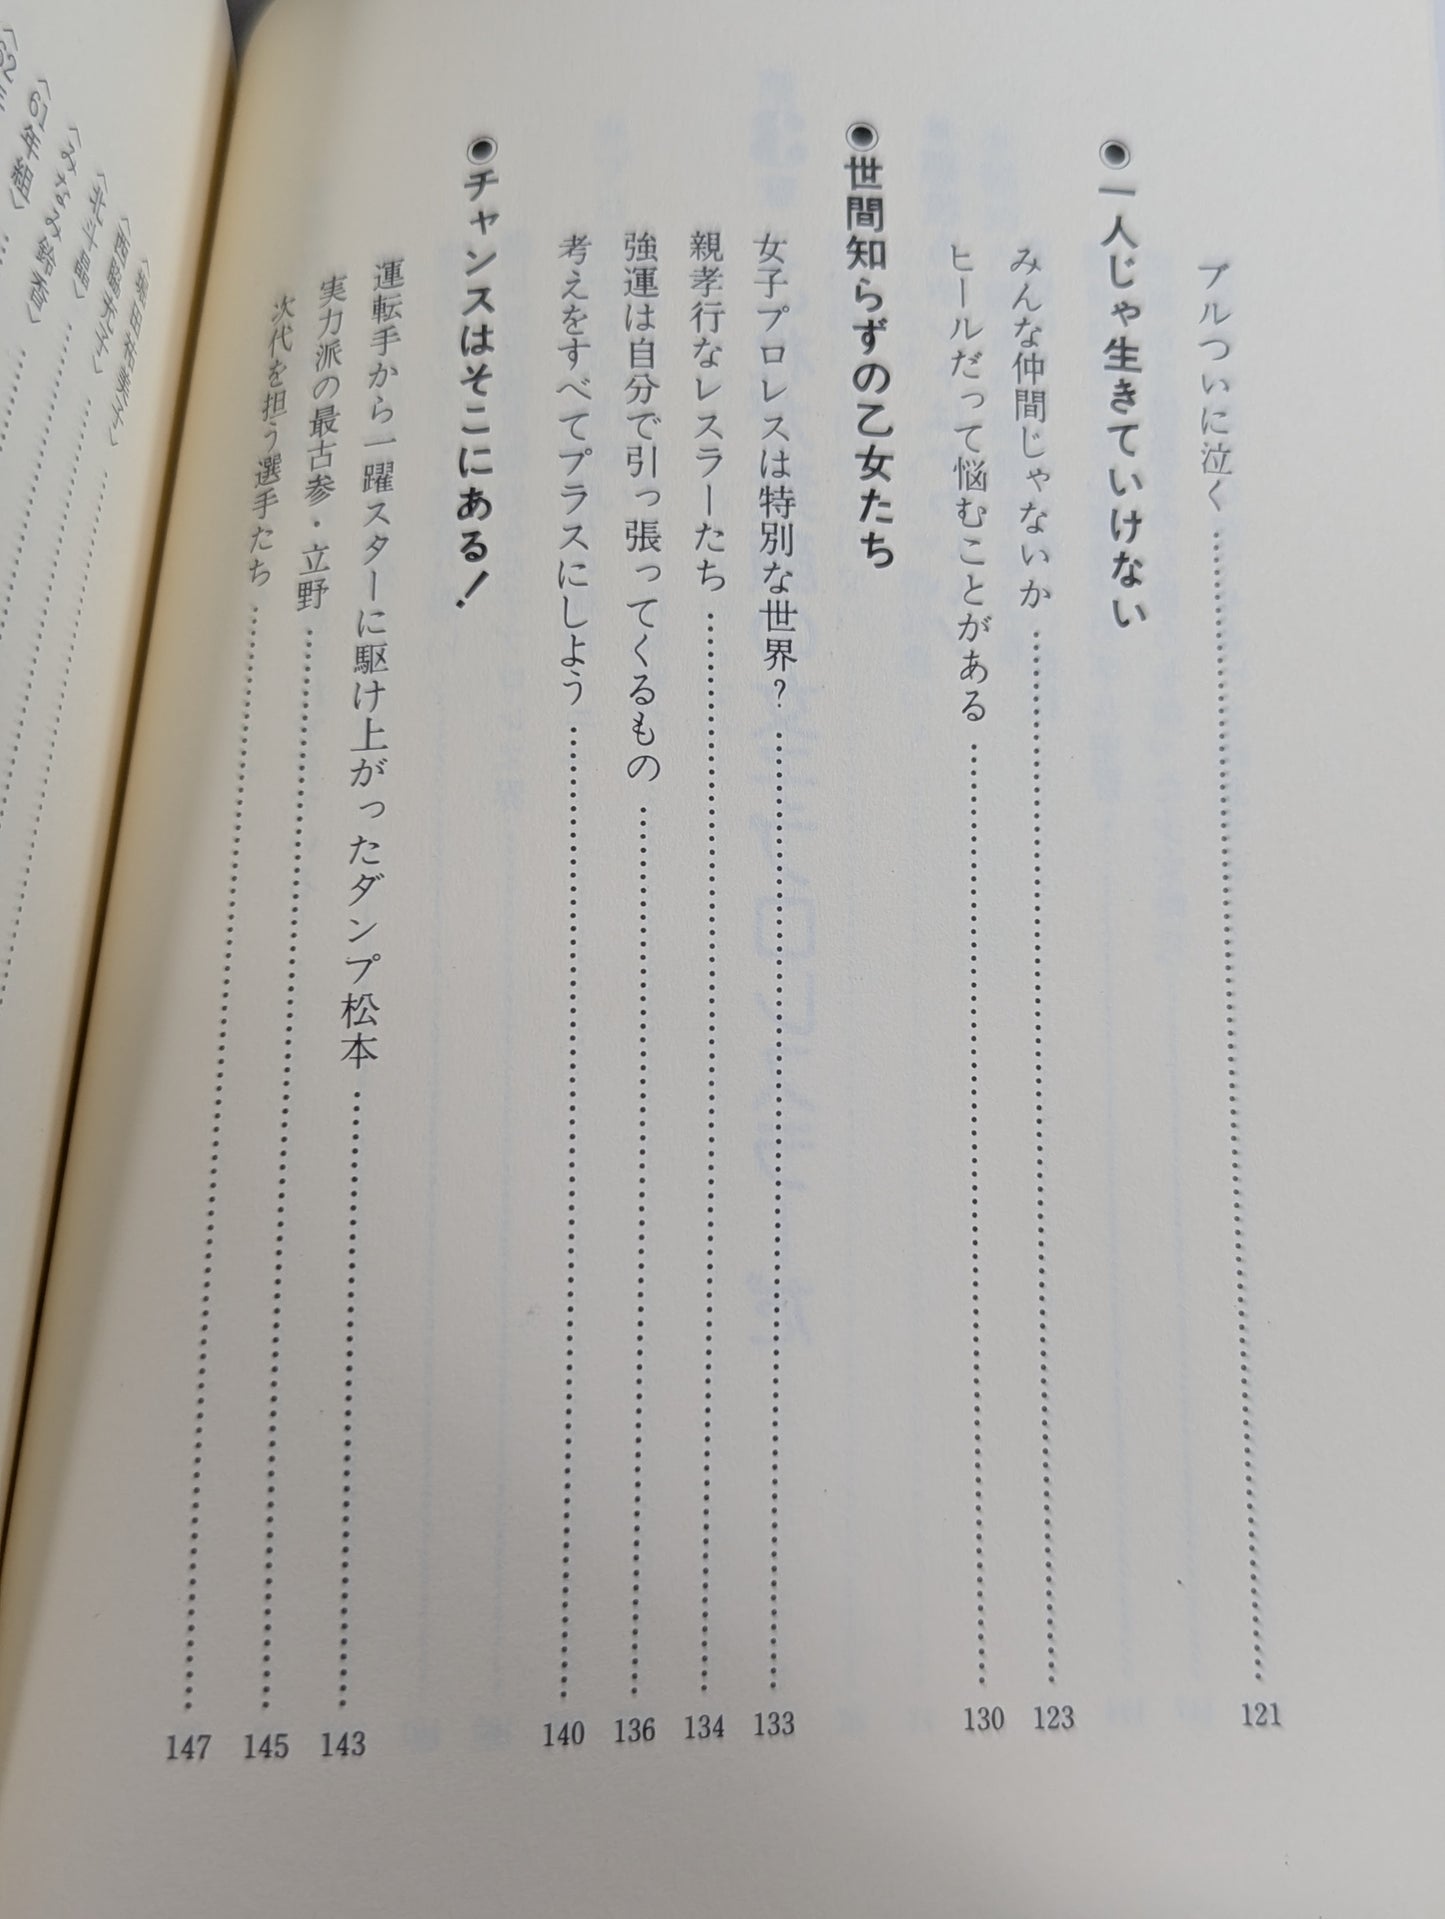 ブルついに泣く……121
◉一人じゃ生きていけない
みんな仲間じゃないか……123
ヒールだって悩むことがある……130
◉世間知らずの乙女たち
女子プロレスは特別な世界?……133
親孝行なレスラーたち……134
強運は自分で引っ張ってくるもの……136
考えをすべてプラスにしよう……140
◉チャンスはそこにある!
運転手から一躍スターに駆け上がったダンプ松本……143
実力派の最古参・立野……145
次代を担う選手たち……147
〈堀田祐美子〉……
〈西脇充子〉……
〈北斗晶〉……
〈みなみ鈴香〉……
〈61年組〉……